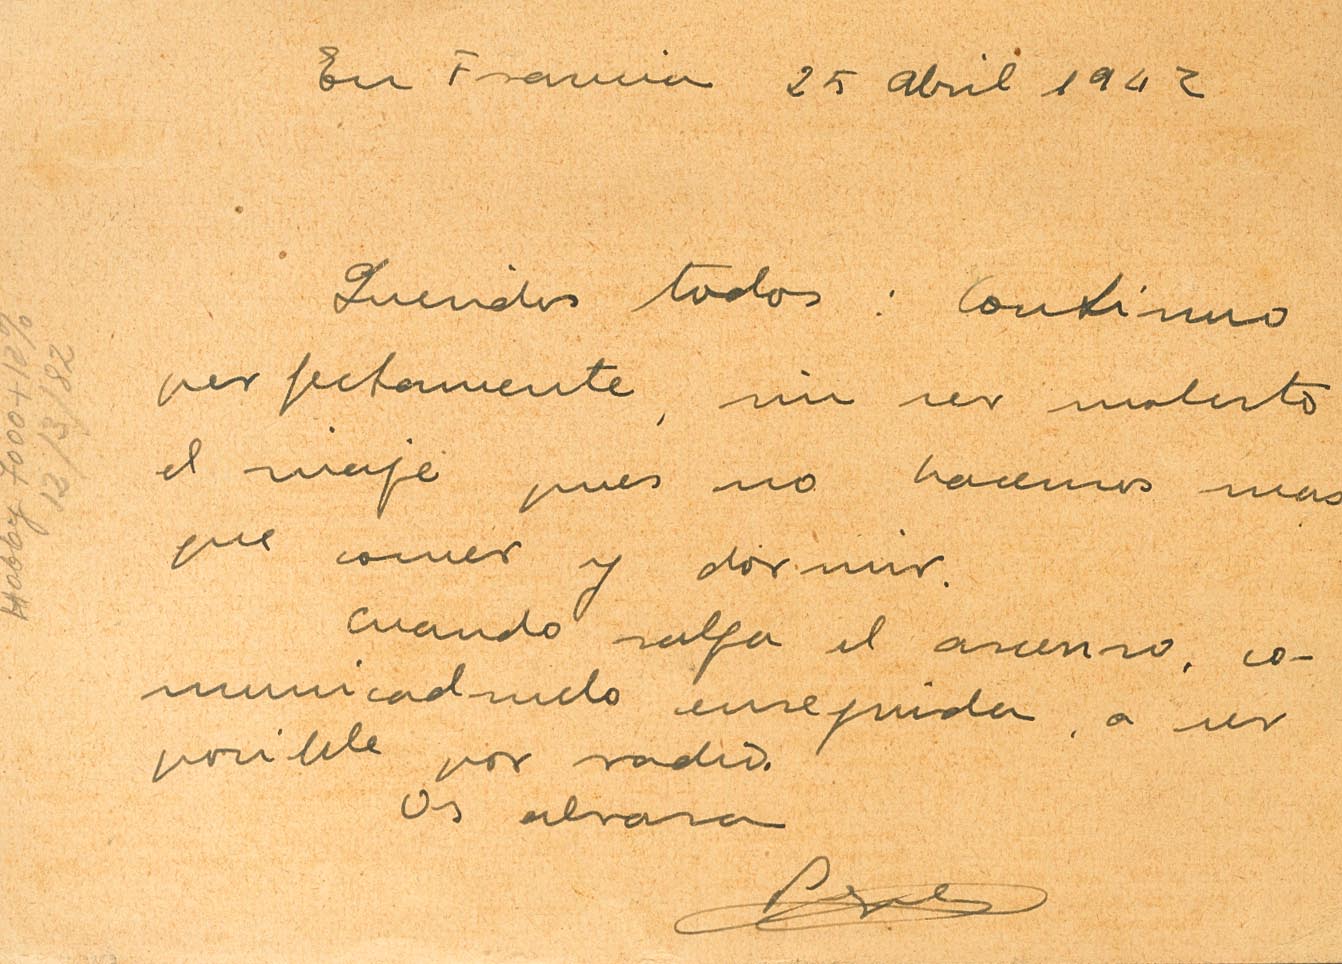 En Francia 25 abril 1942
Queridos todos : Continuo
perfectamente, sin ser molesto
el viaje pues no hacemos mas
que comer y dormir.
Cuando salga el ascenso, co-
municadmelo enseguida, a ser
posible por radio.
Os abraza
Pepe
Hobby 7000+12%
12/3/82